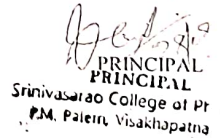 PRINCIPAL
PRINCIPAL
Srinivasarao College of Pr
P.M. Palem, Visakhapatna